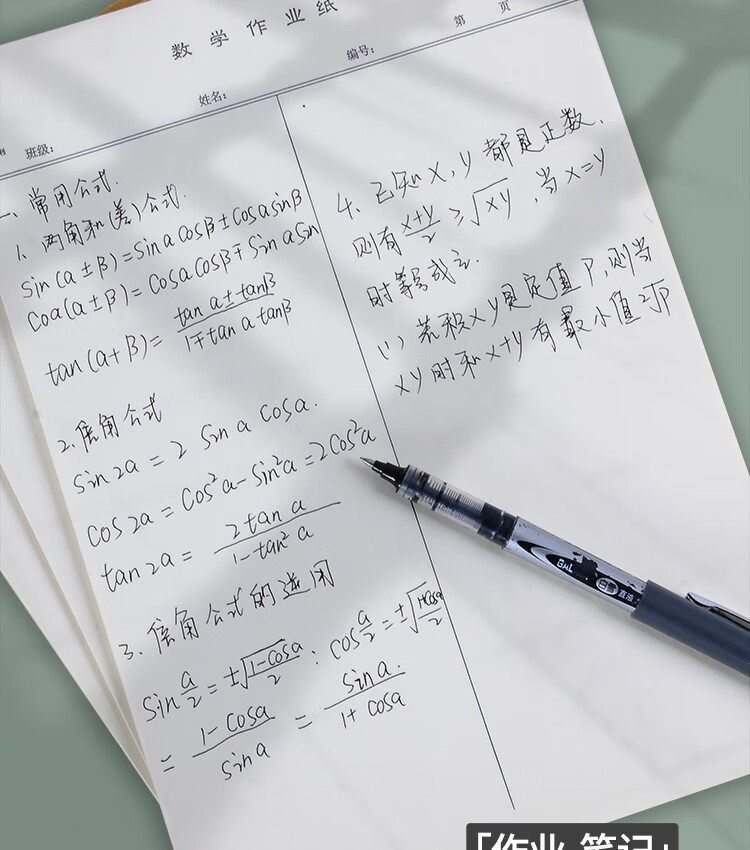 数学作业纸
班级: 姓名: 编号: 第 页
一、常用公式.
1、两角和(差)公式.
sin(a±β)=sina cosβ±cosasinβ
Coa(a±β)=Cosacosβ∓sinasin
tan(a+β)= (tan a±tanβ)/(1∓tan a·tanβ)
2.倍角公式
sin2a=2 sin a cosa.
cos2a=cos²a-sin²a=2cos²a
tan2a= 2tan a/(1-tan² a)
3.倍角公式的逆用
sin a/2=±√((1-cosa)/2) : cos a/2=±√((1+cosa)/2)
= (1-cosa)/sin a = sin a./(1+cosa)
4.已知x,y都是正数,
则有 (x+y)/2 ≥√xy ,当x=y
时等号成立.
(1)若积xy是定值P,则当
xy时和x+y有最小值2√P
直液
「作业 笔记」